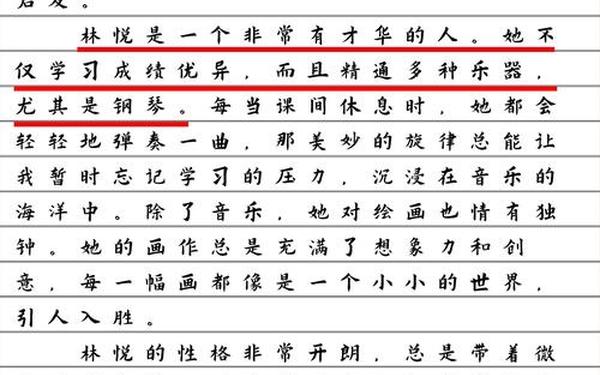 启发。
林悦是一个非常有才华的人。她不
仅学习成绩优异，而且精通多种乐器，
尤其是钢琴。每当课间休息时，她都会
轻轻地弹奏一曲，那美妙的旋律总能让
我暂时忘记学习的压力，沉浸在音乐的
海洋中。除了音乐，她对绘画也情有独
钟。她的画作总是充满了想象力和创
意，每一幅画都像是一个小小的世界，
引人入胜。
林悦的性格非常开朗，总是带着微